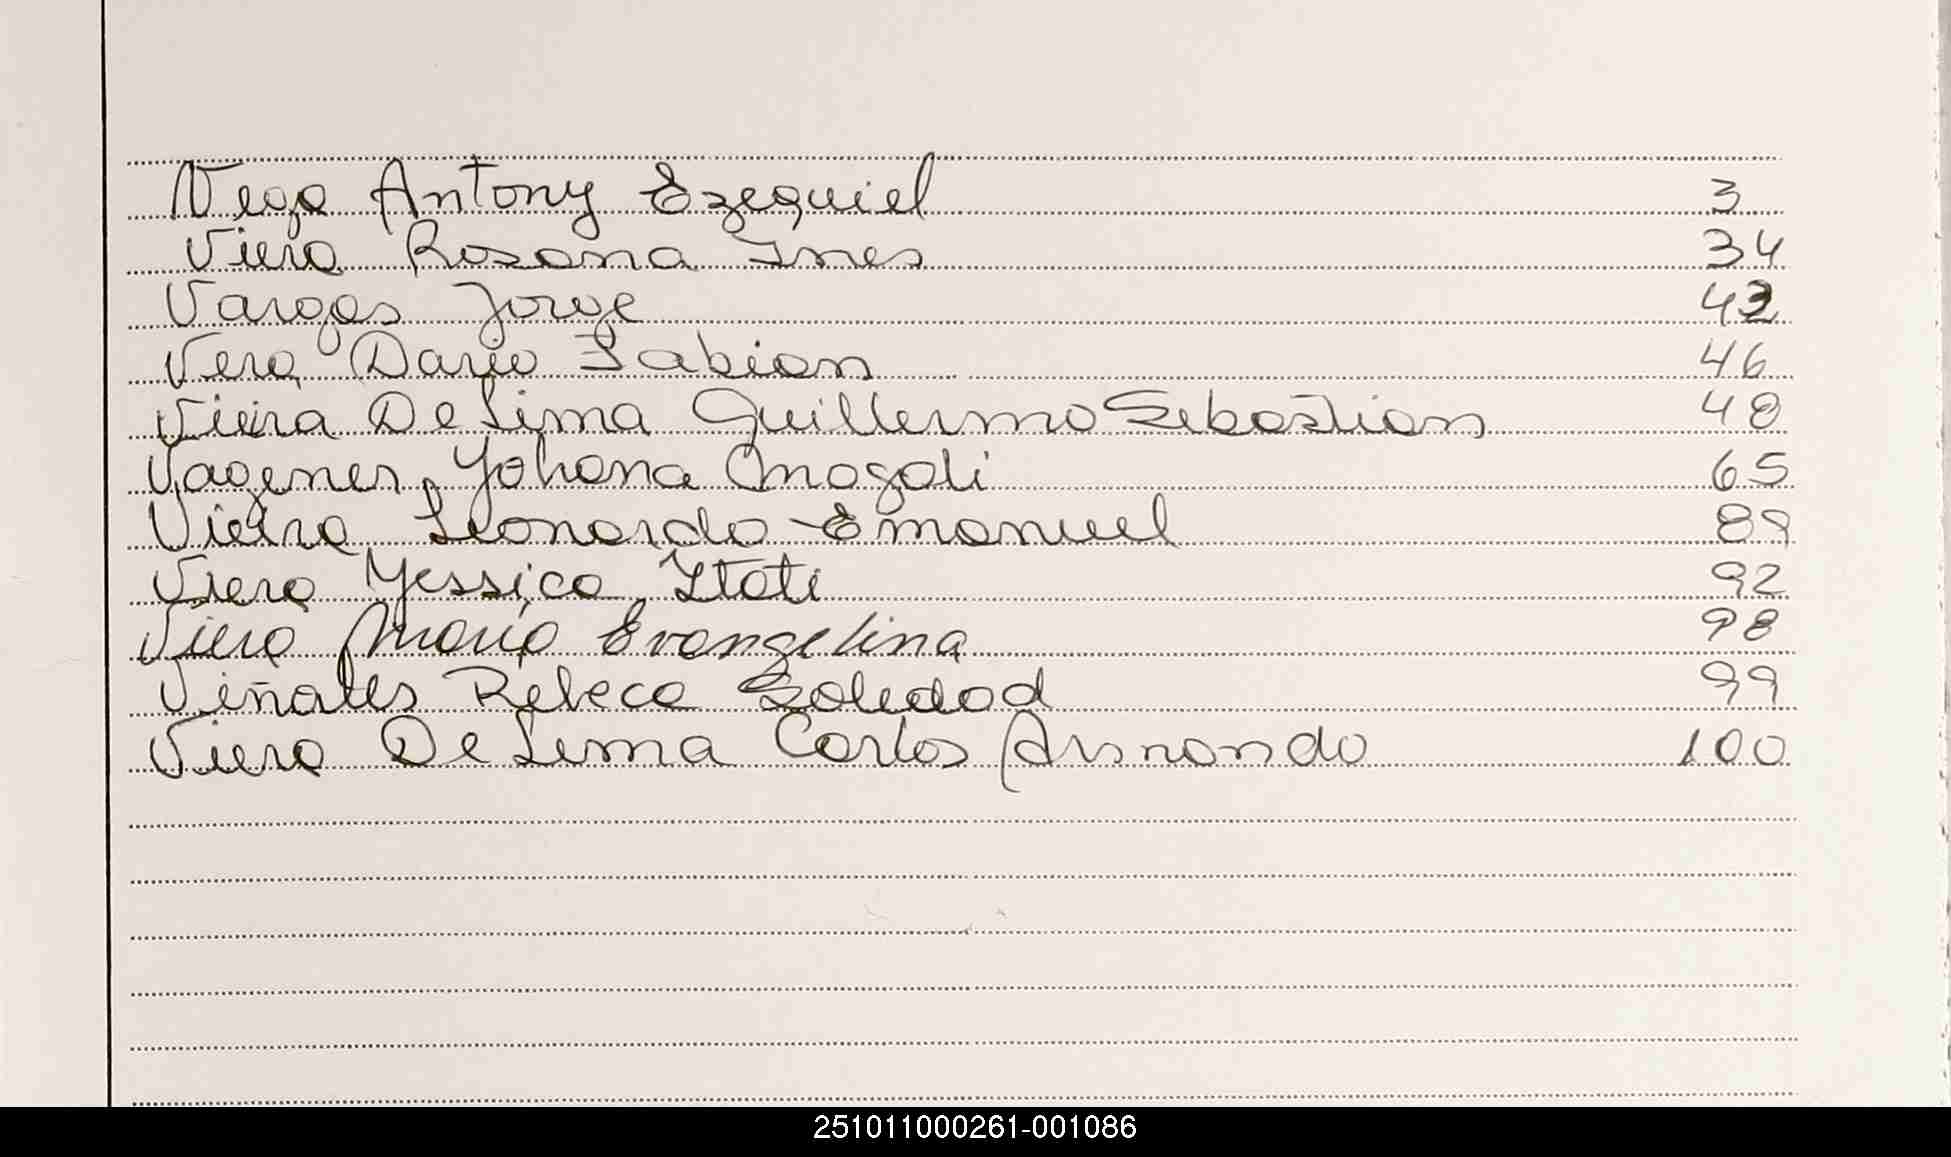 Vega Antony Ezequiel 3
Viera Rosana Ines 34
Vargas Jorge 42
Vera Dario Fabian 46
Vieira De Lima Guillermo Sebastian 48
Vagener, Yohana Magali 65
Vieira Leonardo Emanuel 89
Viera Yessica Itati 92
Viera Maria Evangelina 98
Viñales Rebeca Soledad 99
Viera De Lima Carlos Armando 100
251011000261-001086